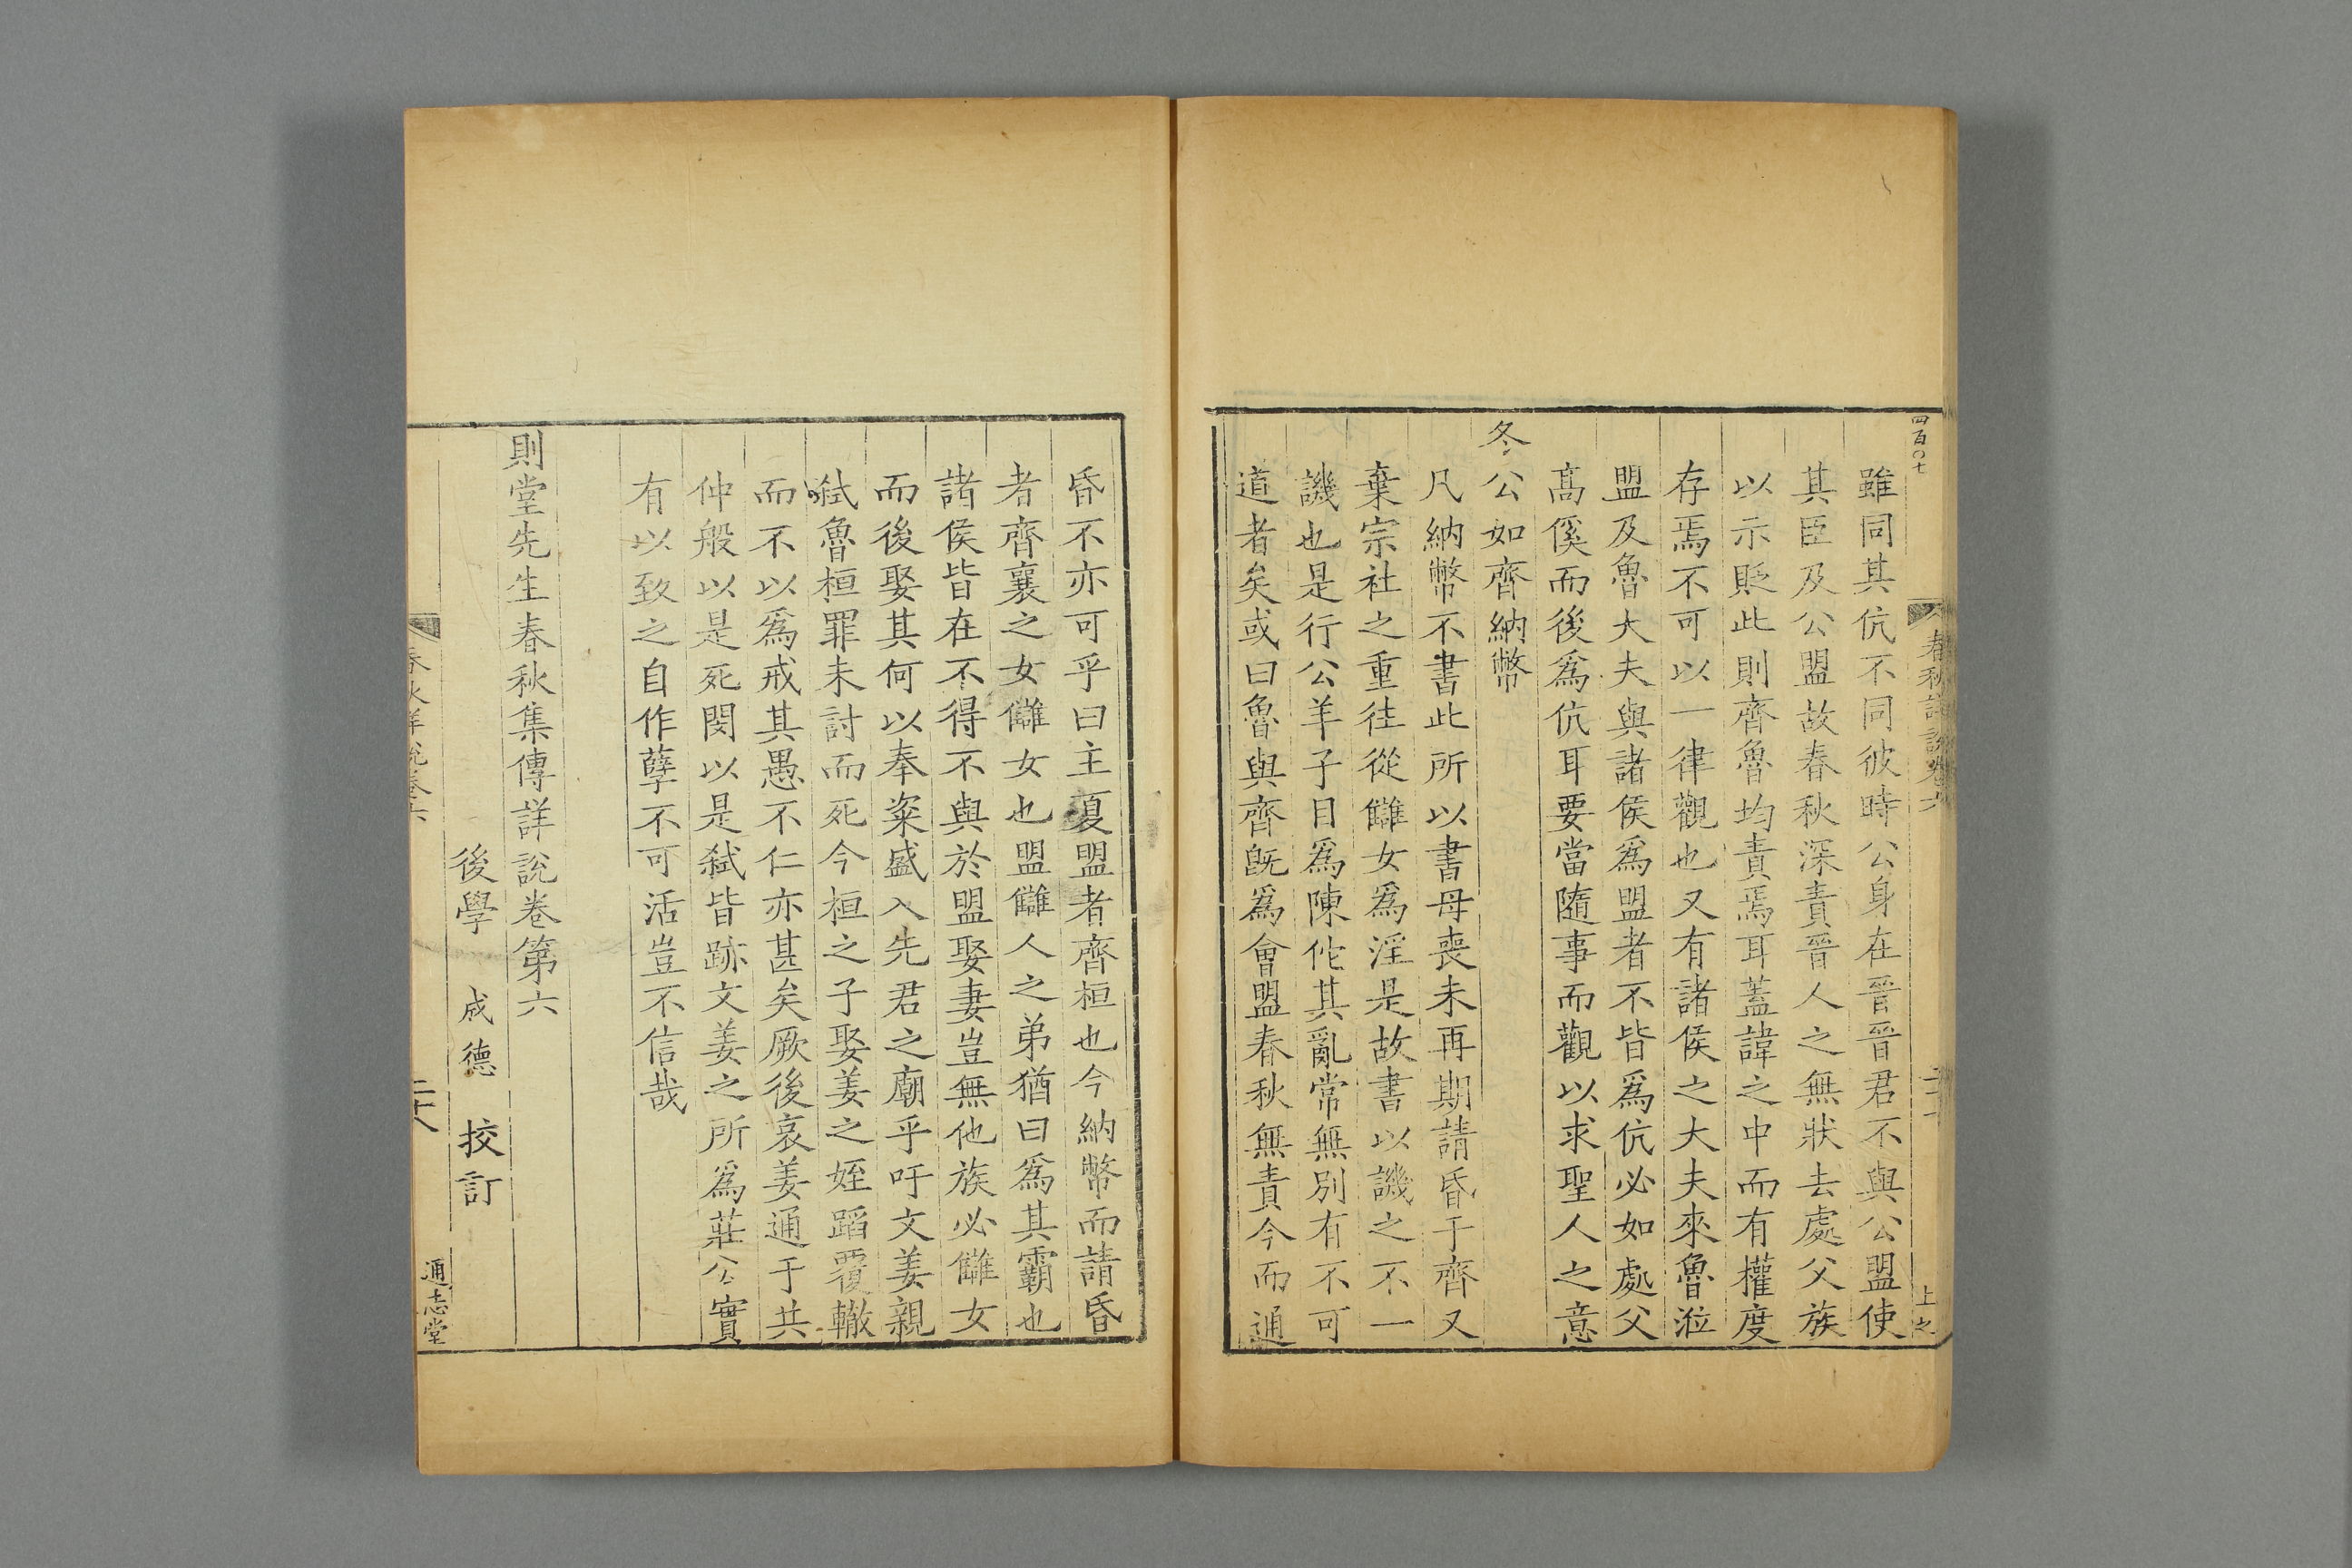 四百〇七
春秋詳說卷六
上之
雖同其伉不同彼時公身在晉晉君不與公盟使
其臣及公盟故春秋深責晉人之無狀去處父族
以示貶此則齊魯均責焉耳蓋諱之中而有權度
存焉不可以一律觀也又有諸侯之大夫來魯涖
盟及魯大夫與諸侯為盟者不皆為伉必如處父
高傒而後為伉耳要當隨事而觀以求聖人之意
冬公如齊納幣
凡納幣不書此所以書母喪未再期請昏于齊又
棄宗社之重往從讎女為淫是故書以譏之不一
譏也是行公羊子目為陳佗其亂常無別有不可
道者矣或曰魯與齊旣為會盟春秋無責今而通
昏不亦可乎曰主夏盟者齊桓也今納幣而請昏
者齊襄之女讎女也盟讎人之弟猶曰為其霸也
諸侯皆在不得不與於盟娶妻豈無他族必讎女
而後娶其何以奉粢盛入先君之廟乎吁文姜親
弒魯桓罪未討而死今桓之子娶姜之姪蹈覆轍
而不以為戒其愚不仁亦甚矣厥後哀姜通于共
仲般以是死閔以是弒皆跡文姜之所為莊公實
有以致之自作孽不可活豈不信哉
則堂先生春秋集傳詳說卷第六
後學 成德 挍訂
春秋詳說卷六
二十八
通志堂